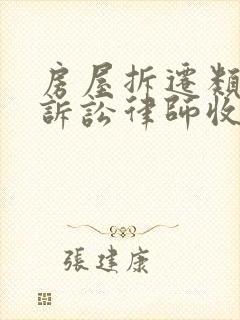 房屋拆遷類
訴訟律師收
張建康